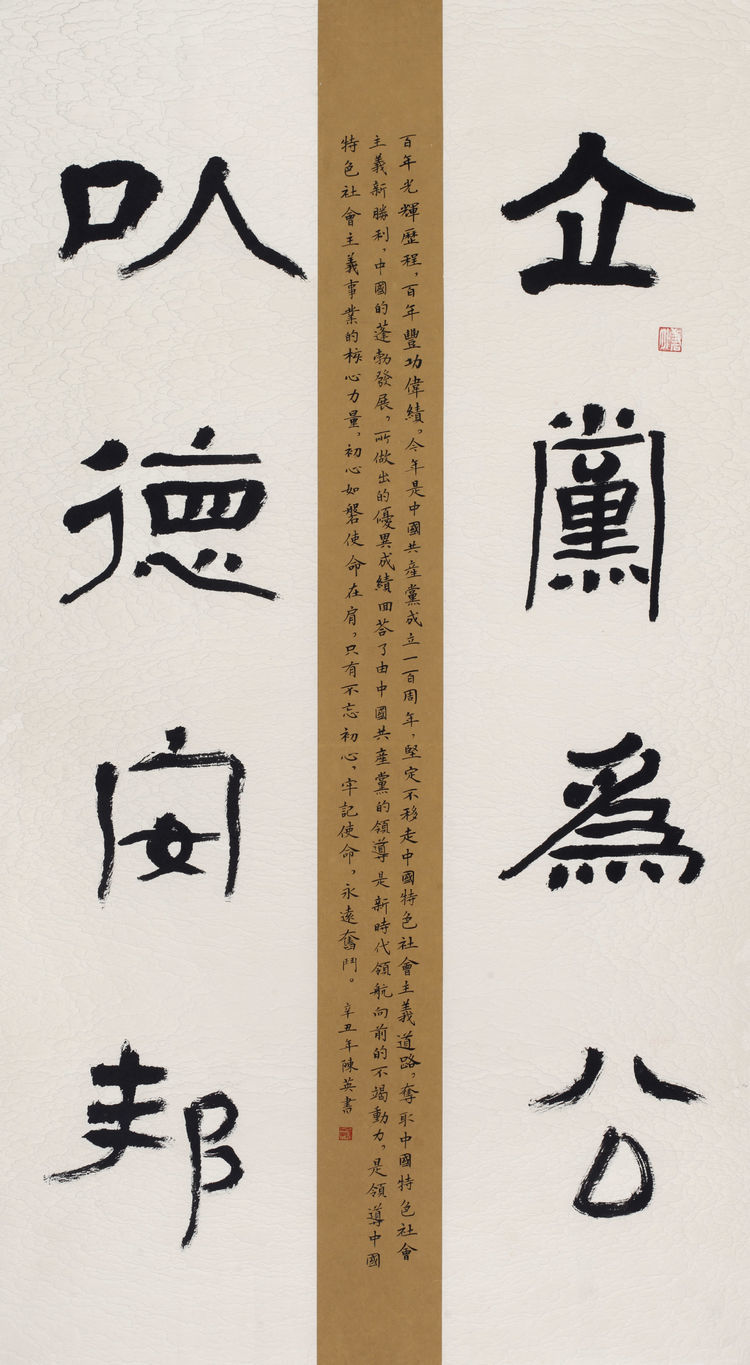 立黨爲公
百年光輝歷程，百年豐功偉績。今年是中國共產黨成立一百周年，堅定不移走中國特色社會主義道路，奪取中國特色社會
主義新勝利，中國的蓬勃發展，所做出的優異成績回荅了由中國共產黨的領導是新時代領航向前的不竭動力，是領導中國
特色社會主義事業的核心力量，初心如磐使命在肩，只有不忘初心，牢記使命，永遠奮鬥。 辛丑年陳英書
以德安邦